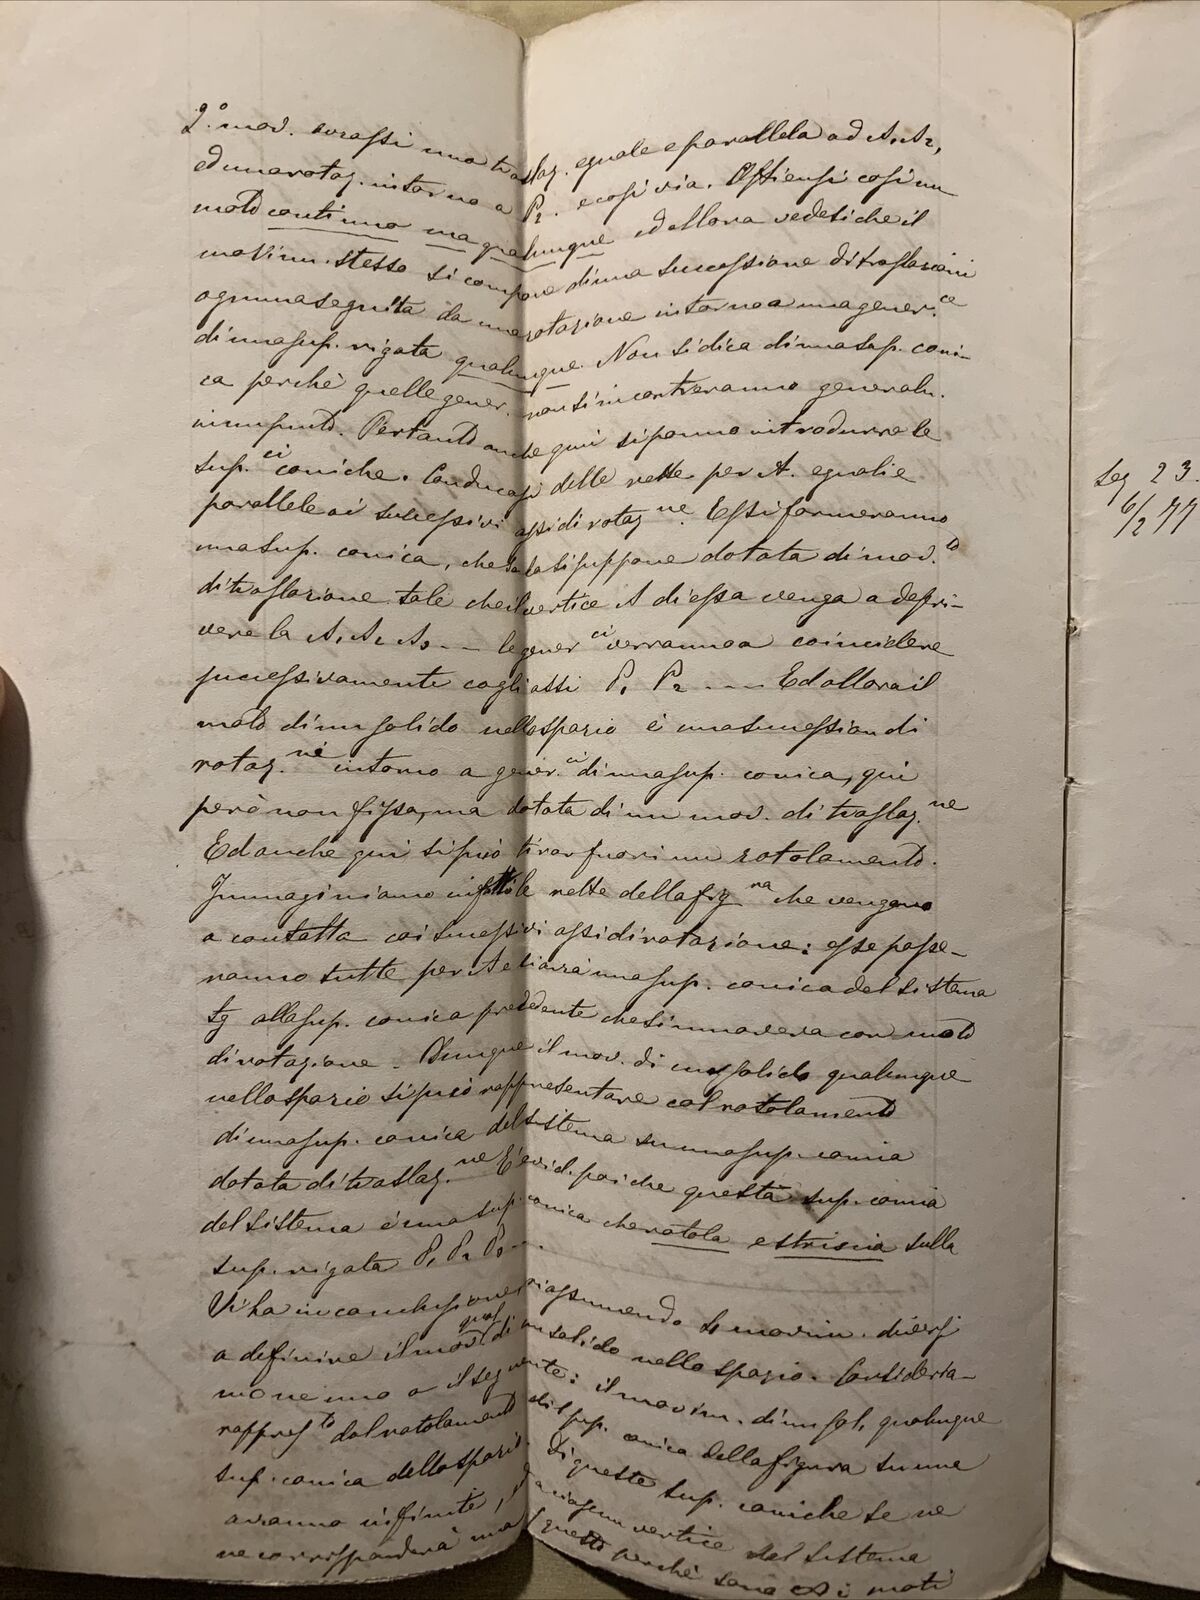 2.º mov. avrassi una traslaz. eguale e parallela ad A₁A₂,
ed una rotaz. intorno a P₂. e così via. Ottiensi così un
moto continuo ma qualunque ed allora vedesi che il
movim. stesso si compone di una successione di traslazioni
ognuna seguita da una rotazione intorno a una gener.ce
di una sup. rigata qualunque. Non si dica di una sup. coni-
ca perchè quelle gener. non si incontreranno generalm.
in un punto. Pertanto anche qui si ponno introdurre le
sup.ci coniche. Conducasi delle rette per A. eguali e
parallele ai successivi assi di rotaz.ne. Essi formeranno
una sup. conica, che la si suppone dotata di mov.to
di traslazione tale che il vertice A di essa venga a descri-
vere la A₁ A₂ A₃ -- le gener.ci verranno a coincidere
successivamente cogli assi P₁ P₂ ---- Ed allora il
moto di un solido nello spazio è una succession di
rotaz.ni intorno a gener.ci di una sup. conica, qui
però non fissa, ma dotata di un mov. di traslaz.ne
Ed anche qui si può tirar fuori un rotolamento.
Immaginiamo infatti le rette della fig.ra che vengono
a contatto coi successivi assi di rotazione: esse passe-
ranno tutte per A e si avrà una sup. conica del sistema
tg alla sup. conica precedente che si muoveva con moto
di rotazione. Dunque il mov. di un solido qualunque
nello spazio si può rappresentare col rotolamento
di una sup. conica del sistema su una sup. conica
dotata di traslaz.ne È evid. poi che questa sup. conica
del sistema è una sup. conica che rotola e striscia sulla
sup. rigata P₁ P₂ P₃ --.
Vi ha in conclusione riassumendo 4 movim. diversi
a definire il mov. qual. di un solido nello spazio. Consideria-
mone uno o il seguente: il movim. di un sol. qualunque
rappres.to dal rotolamento di 1 sup. conica della figura su una
sup. conica dello spazio. Di queste sup. coniche se ne
avranno infinite, ed a ciascun vertice del sistema
ne corrisponderà una questo perchè sono ∞ i moti
Leg 23.
6/2 77